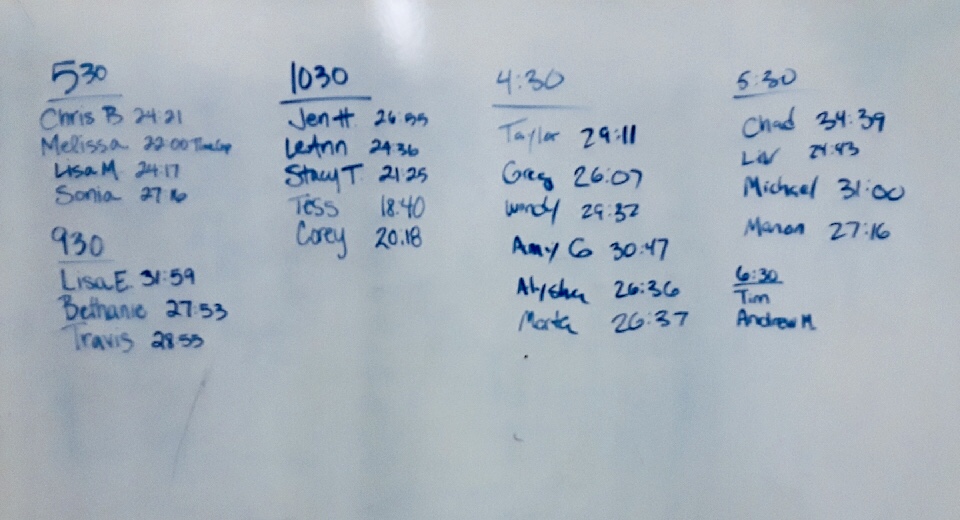 530
Chris B 24:21
Melissa 22:00 Time Cap
Lisa M. 24:17
Sonia 27:16
930
Lisa E. 31:59
Bethanie 27:53
Travis 28:55
1030
Jen H 26:55
LeAnn 24:36
Stacy T. 21:25
Tess 18:40
Corey 20:18
4:30
Taylor 29:11
Greg 26:07
Wendy 29:32
Amy G 30:47
Alysha 26:36
Marta 26:37
5:30
Chad 34:39
Liv
Michael 31:00
27:16
6:30
Tim
Andrew M.